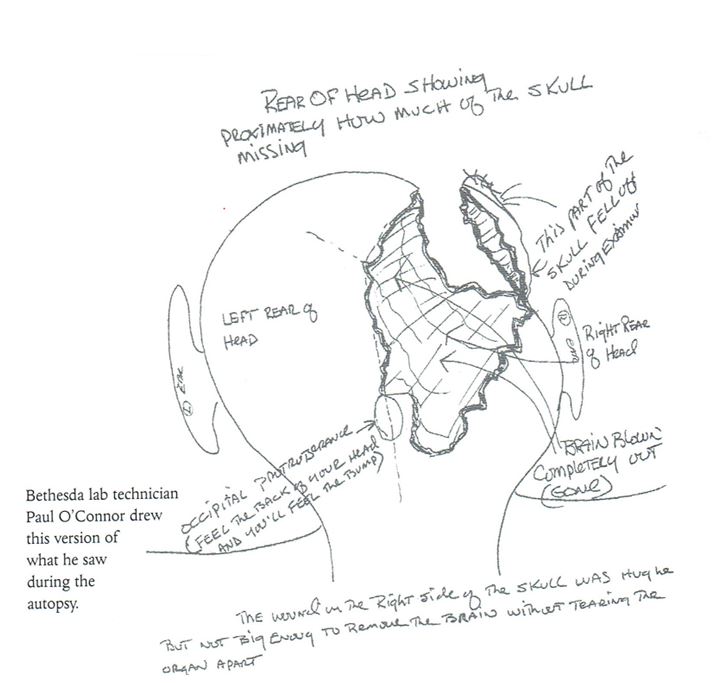 REAR OF HEAD SHOWING
PROXIMATELY HOW MUCH OF THE SKULL
MISSING
THIS PART OF THE
SKULL FELL OFF
DURING
LEFT REAR OF
HEAD
(L) EAR
(R)
EAR
RIGHT REAR
OF HEAD
OCCIPITAL PROTRUBERANCE
(FEEL THE BACK OF YOUR HEAD
AND YOU'LL FEEL THE BUMP)
BRAIN BLOWN
COMPLETELY OUT
(GONE)
Bethesda lab technician
Paul O'Connor drew
this version of
what he saw
during the
autopsy.
THE WOUND ON THE RIGHT SIDE OF THE SKULL WAS HUGHE
BUT NOT BIG ENOUG TO REMOVE THE BRAIN WITHOUT TEARING THE
ORGAN APART